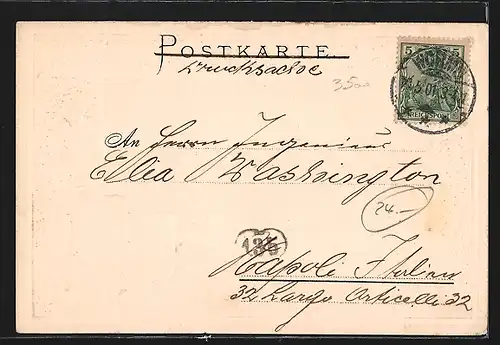 POSTKARTE
Drucksache
5 5
WORMS
REICHSPOST
3500
An Herrn Ingenieur
Elia Washington
24.-
135
Napoli Italien
32 Largo Orticelli 32